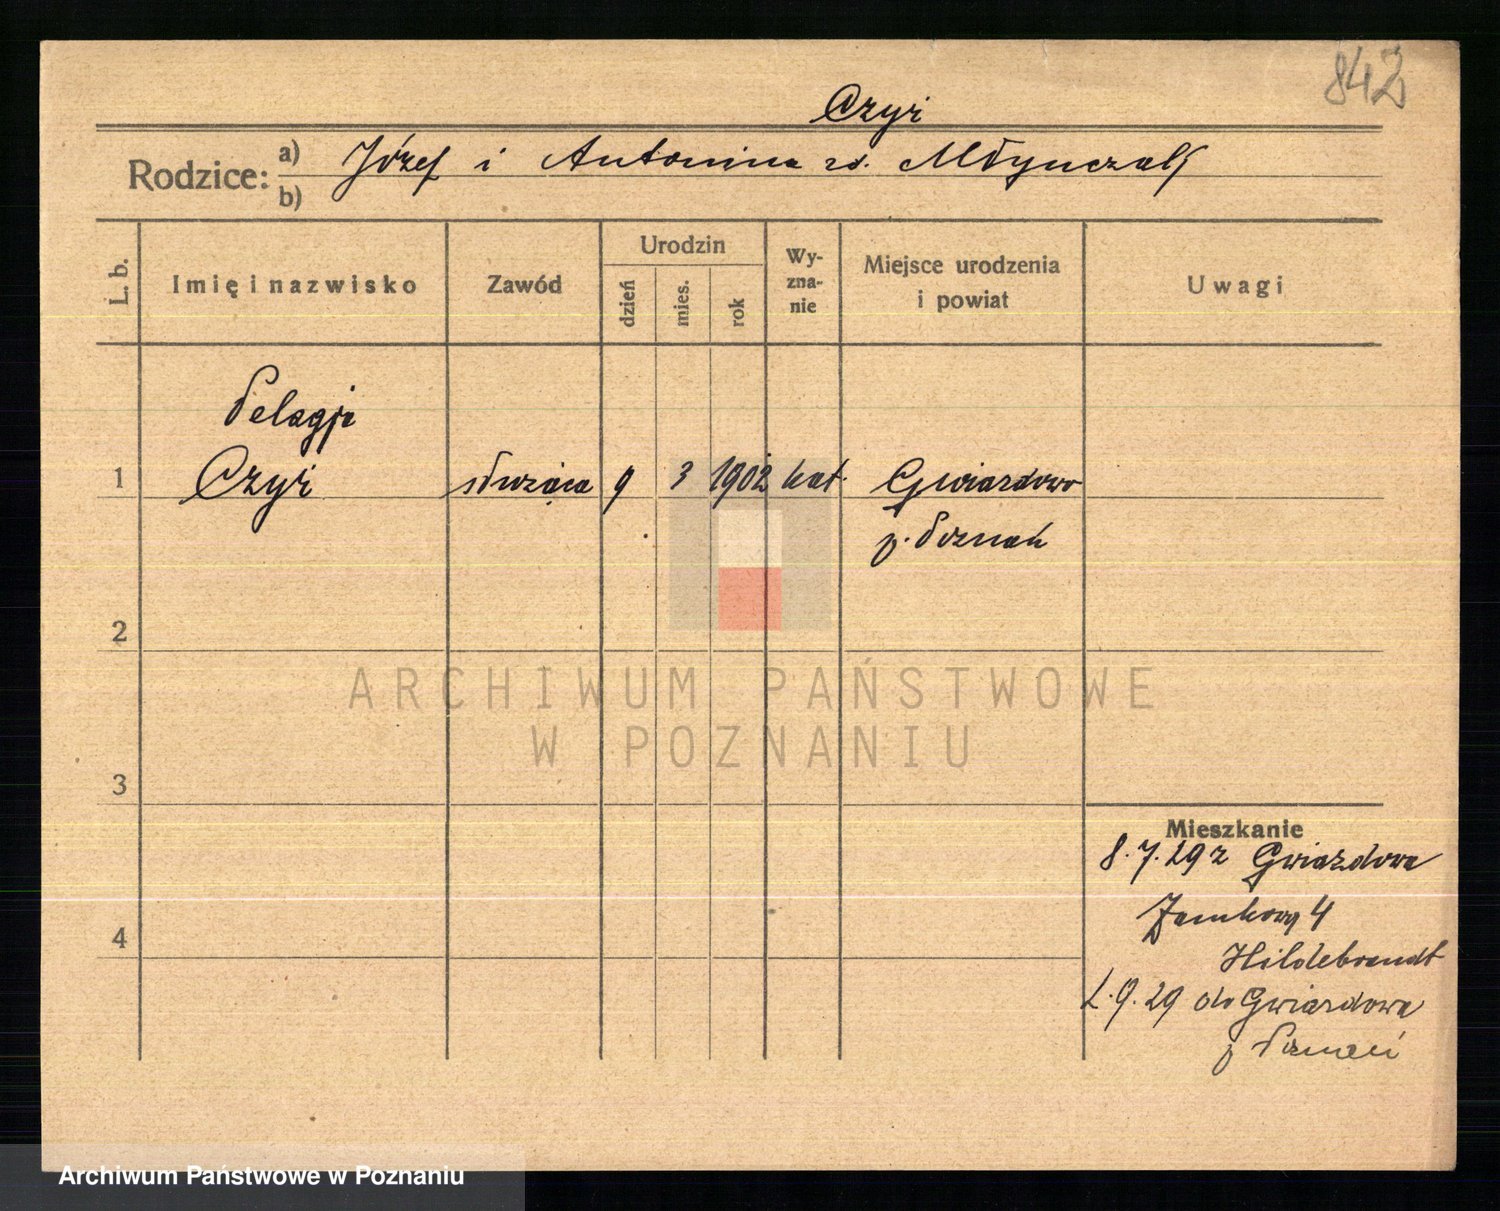 842
Czyż
Rodzice: a) Józef i Antonina zd. Młynczak
b)
L. b.
Imię i nazwisko
Zawód
Urodzin
dzień
mies.
rok
Wy-
zna-
nie
Miejsce urodzenia
i powiat
Uwagi
Pelagja
1 Czyż służąca 9 3 1902 kat. Gwiazdowo
p. Poznań
2
3
4
Mieszkanie
8.7.29 z Gwiazdowa
Zamkowa 4
Hildebrandt
2.9.29 do Gwiazdowa
p Poznań
ARCHIWUM PAŃSTWOWE
W POZNANIU
Archiwum Państwowe w Poznaniu